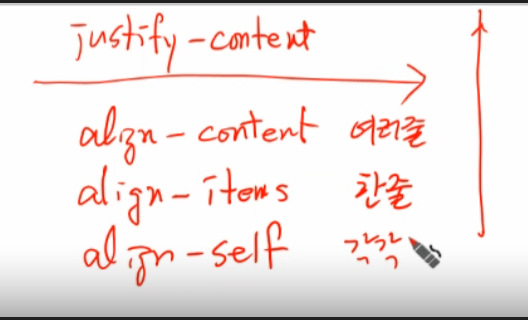 justify-content
align-content 여러줄
align-items 한줄
align-self 각각